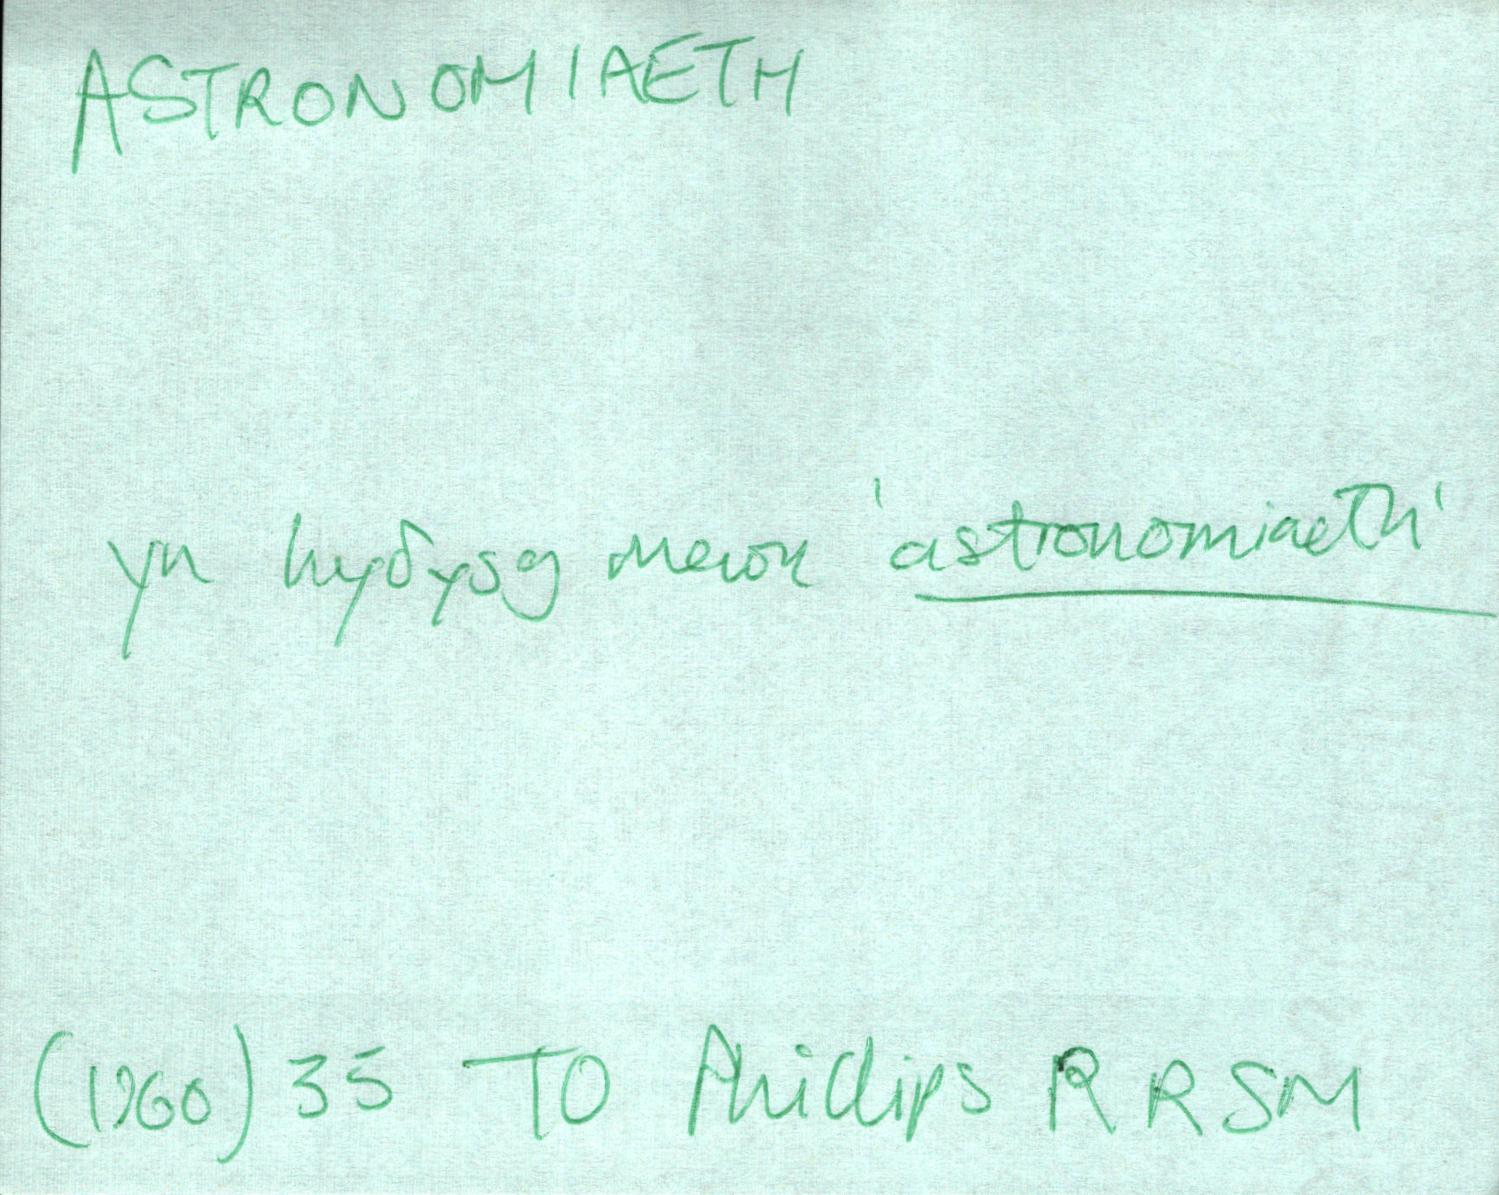 ASTRONOMIAETH
yn hyδysg mewn 'astronomiaeth'
(1960) 35 TO Phillips RRSM